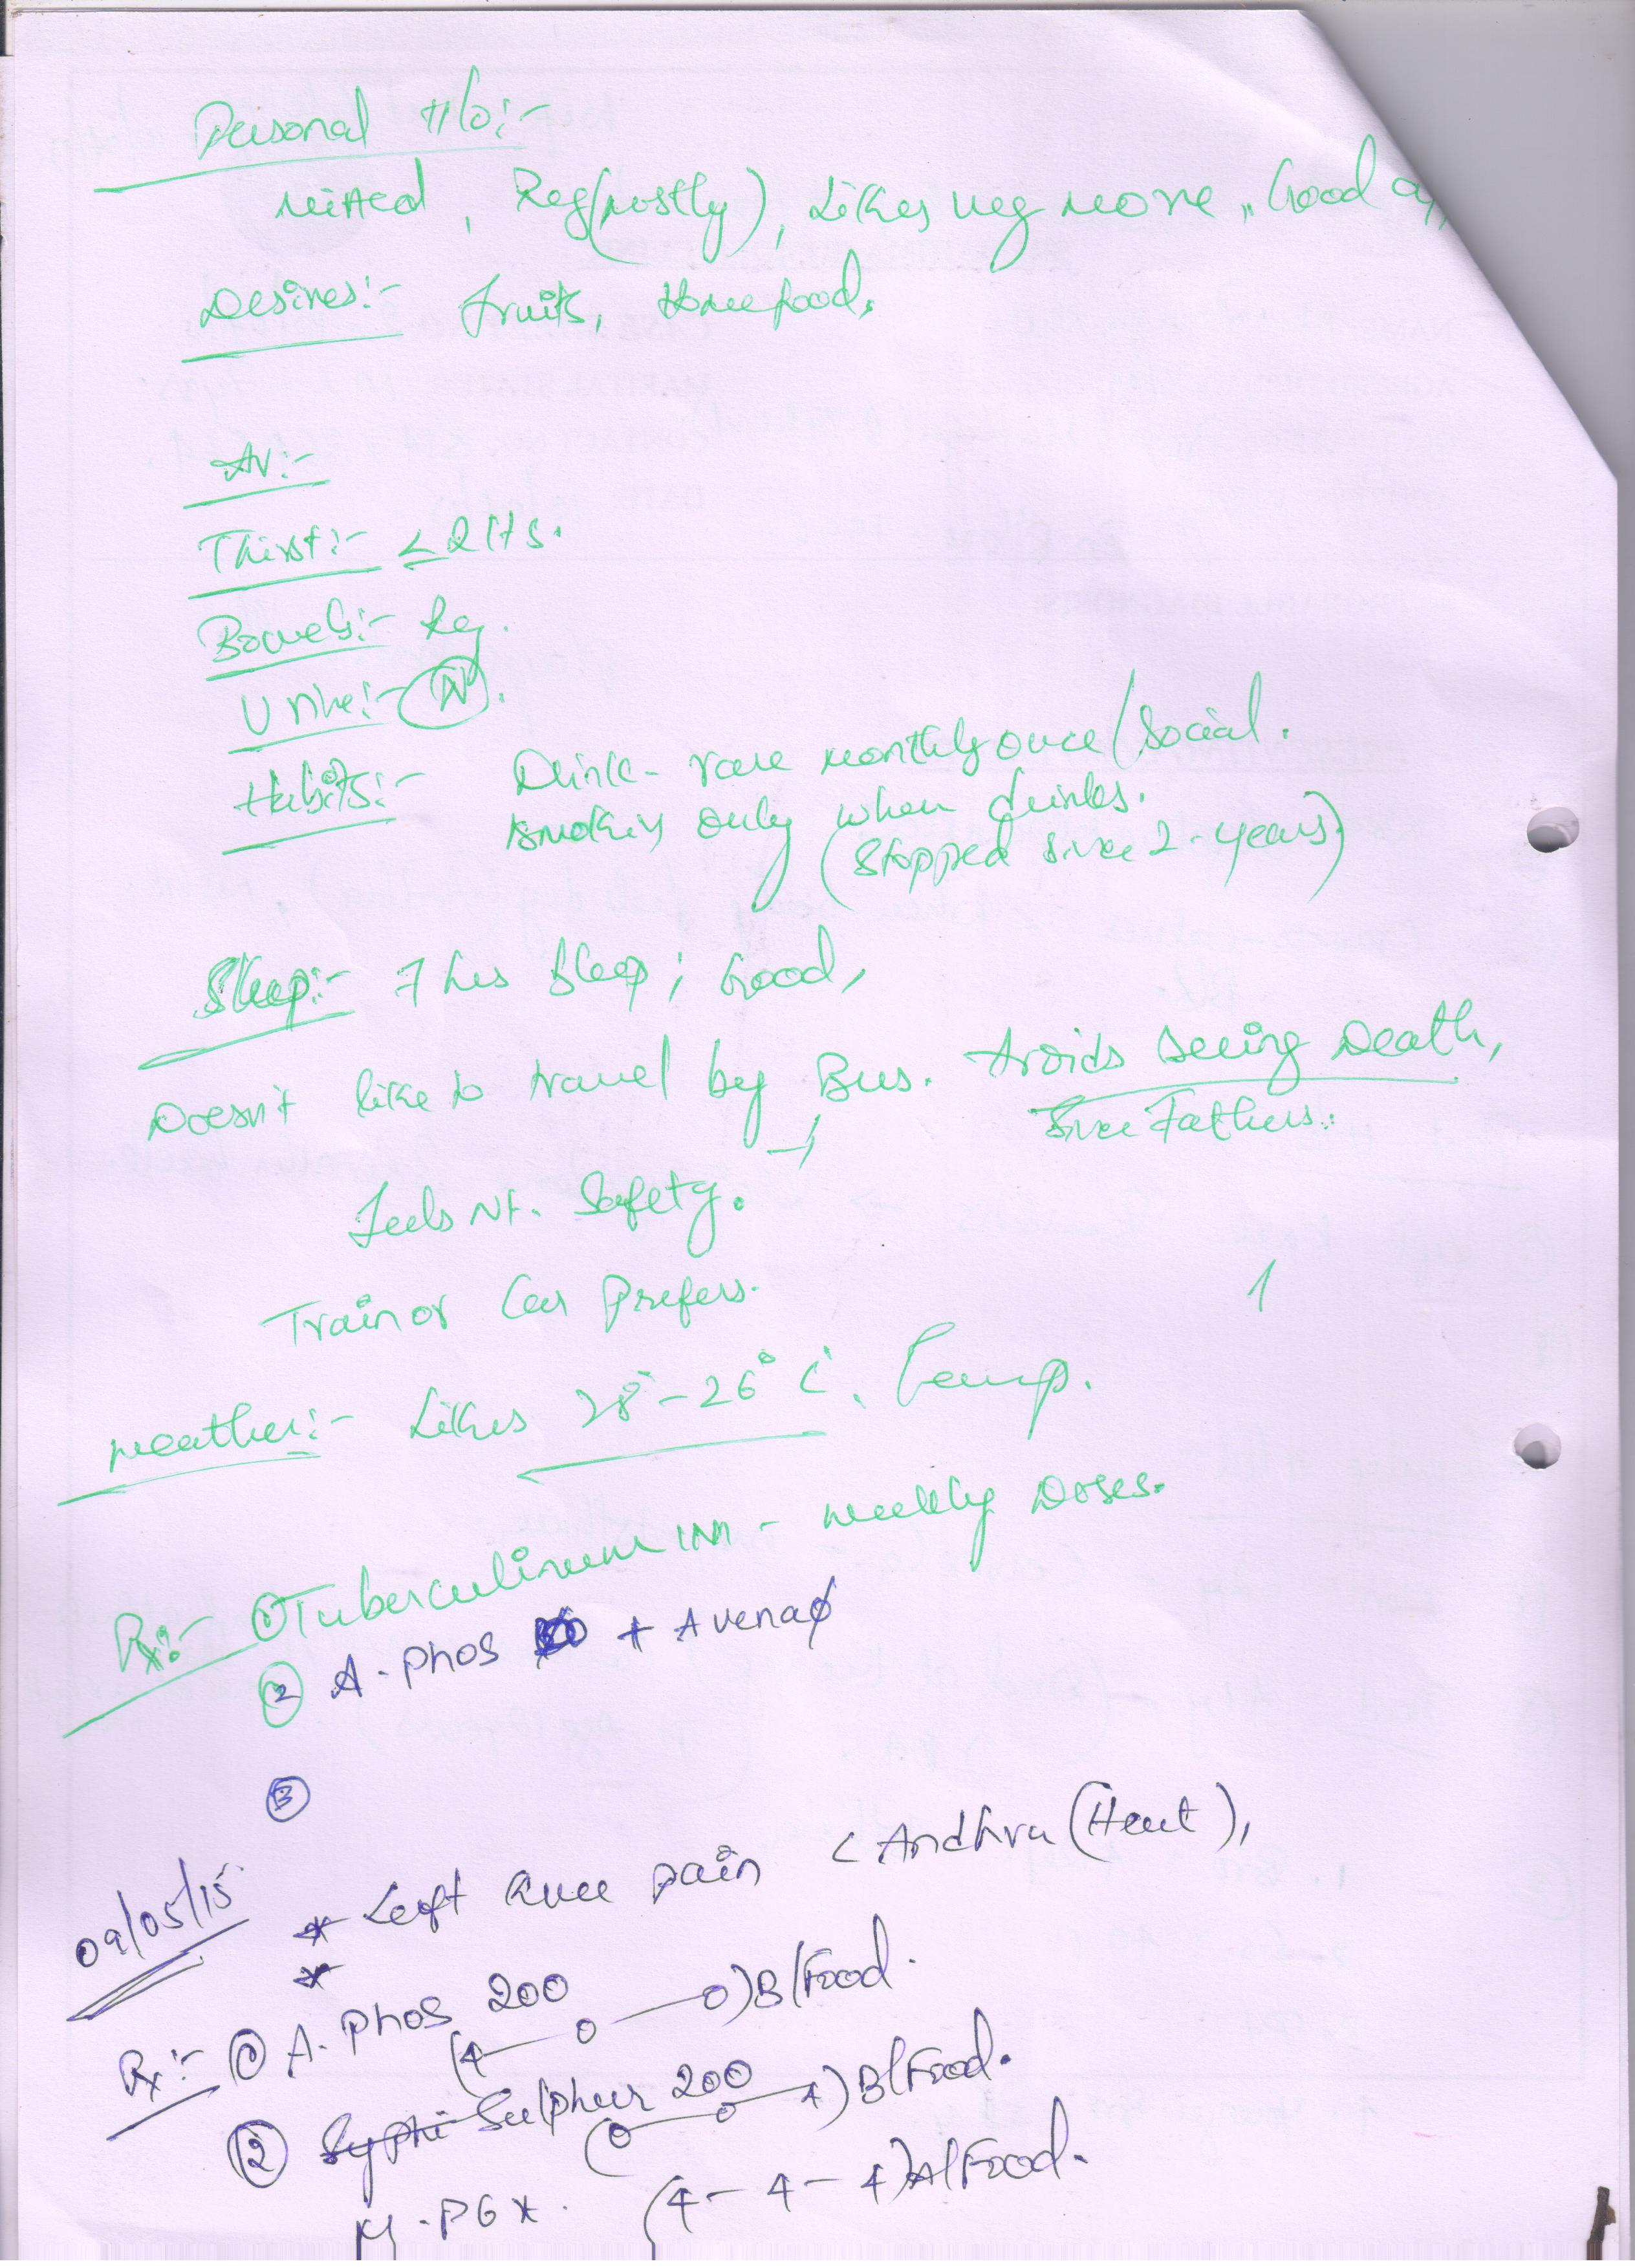 Personal H/o:-
Mixed, Reg(mostly), Likes veg more, Good ap
Desires:- Fruits, Home food.
Av:-
Thirst:- ≤ 2 lts.
Bowels:- Reg.
Urine:- (N).
Habits:- Drink - rare monthly once / Social.
Smoking only when drinks.
(Stopped since 2-years)
Sleep:- 7 hrs sleep; Good,
Doesn't like to travel by Bus. Avoids seeing Death,
Since Fathers.
→ Feels Nt. Safety.
Train or Car Prefers.
Weather:- Likes 28°-26°C. Temp.
Rx:- ① Tuberculinum 1M - weekly Doses.
② A. Phos + Avena ϕ
③
09/05/15 * Left knee pain < Andhra (Heat),
*
Rx:- ① A. Phos 200
(4 — 0 — 0) B/Food.
② Syphi Sulphur 200
(0 — 0 — 4) B/Food.
M.PGX. (4 - 4 - 4) A/Food.